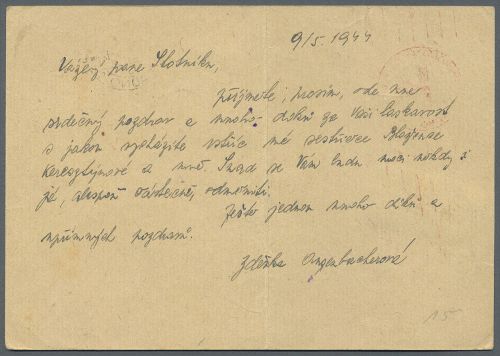 9/5. 1944
Vážený pane Slotníku,
přijměte, prosím, ode mne
srdečný pozdrav a mnoho díků za Vaši laskavost
s jakou vycházíte vstříc mé sestřičce Blaženě
Keresztýnové a mně. Snad se Vám budu moci někdy i
já, alespoň částečně, odměniti.
Ještě jednou mnoho díků a
upřímných pozdravů.
Zdeňka Angenbacherová
15